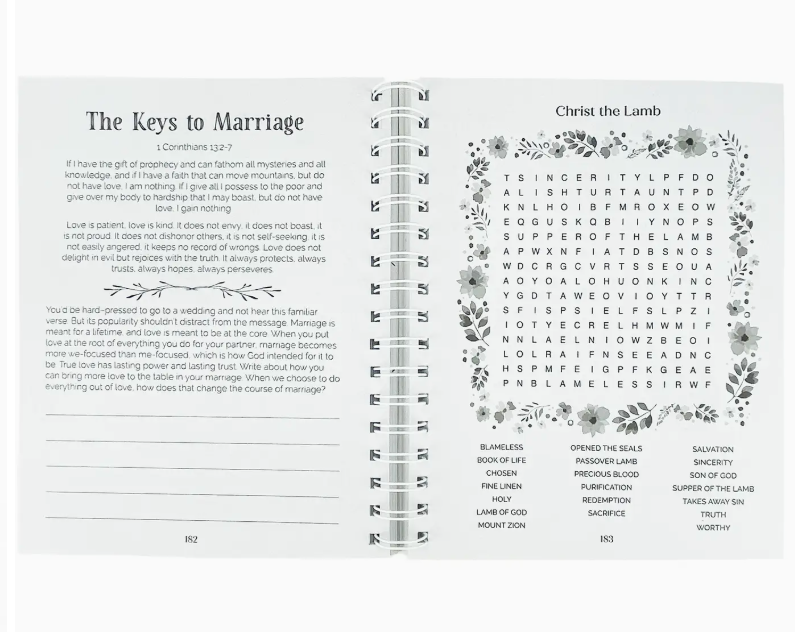 The Keys to Marriage
1 Corinthians 13:2-7
If I have the gift of prophecy and can fathom all mysteries and all
knowledge, and if I have a faith that can move mountains, but do
not have love, I am nothing. If I give all I possess to the poor and
give over my body to hardship that I may boast, but do not have
love, I gain nothing.
Love is patient, love is kind. It does not envy, it does not boast, it
is not proud. It does not dishonor others, it is not self-seeking, it is
not easily angered, it keeps no record of wrongs. Love does not
delight in evil but rejoices with the truth. It always protects, always
trusts, always hopes, always perseveres.
You'd be hard-pressed to go to a wedding and not hear this familiar
verse. But its popularity shouldn't distract from the message. Marriage is
meant for a lifetime, and love is meant to be at the core. When you put
love at the root of everything you do for your partner, marriage becomes
more we-focused than me-focused, which is how God intended for it to
be. True love has lasting power and lasting trust. Write about how you
can bring more love to the table in your marriage. When we choose to do
everything out of love, how does that change the course of marriage?
182
Christ the Lamb
T S I N C E R I T Y L P F D O
A L I S H T U R T A U N T P D
K N L H O I B F M R O X E O W
E Q G U S K Q B I I Y N O P S
S U P P E R O F T H E L A M B
A P W X N F I A T D B S N O S
W D C R G C V R T S S E O U A
A O Y O A L O H U O N K I N C
Y G D T A W E O V I O Y T T R
S F I S P S I E L F S L P Z I
I O T Y E C R E L H M W M I F
N N L A E L N I O W Z B E O I
L O L R A I F N S E E A D N C
H S P M F E I G P F K G E A E
P N B L A M E L E S S I R W F
BLAMELESS
BOOK OF LIFE
CHOSEN
FINE LINEN
HOLY
LAMB OF GOD
MOUNT ZION
OPENED THE SEALS
PASSOVER LAMB
PRECIOUS BLOOD
PURIFICATION
REDEMPTION
SACRIFICE
SALVATION
SINCERITY
SON OF GOD
SUPPER OF THE LAMB
TAKES AWAY SIN
TRUTH
WORTHY
183